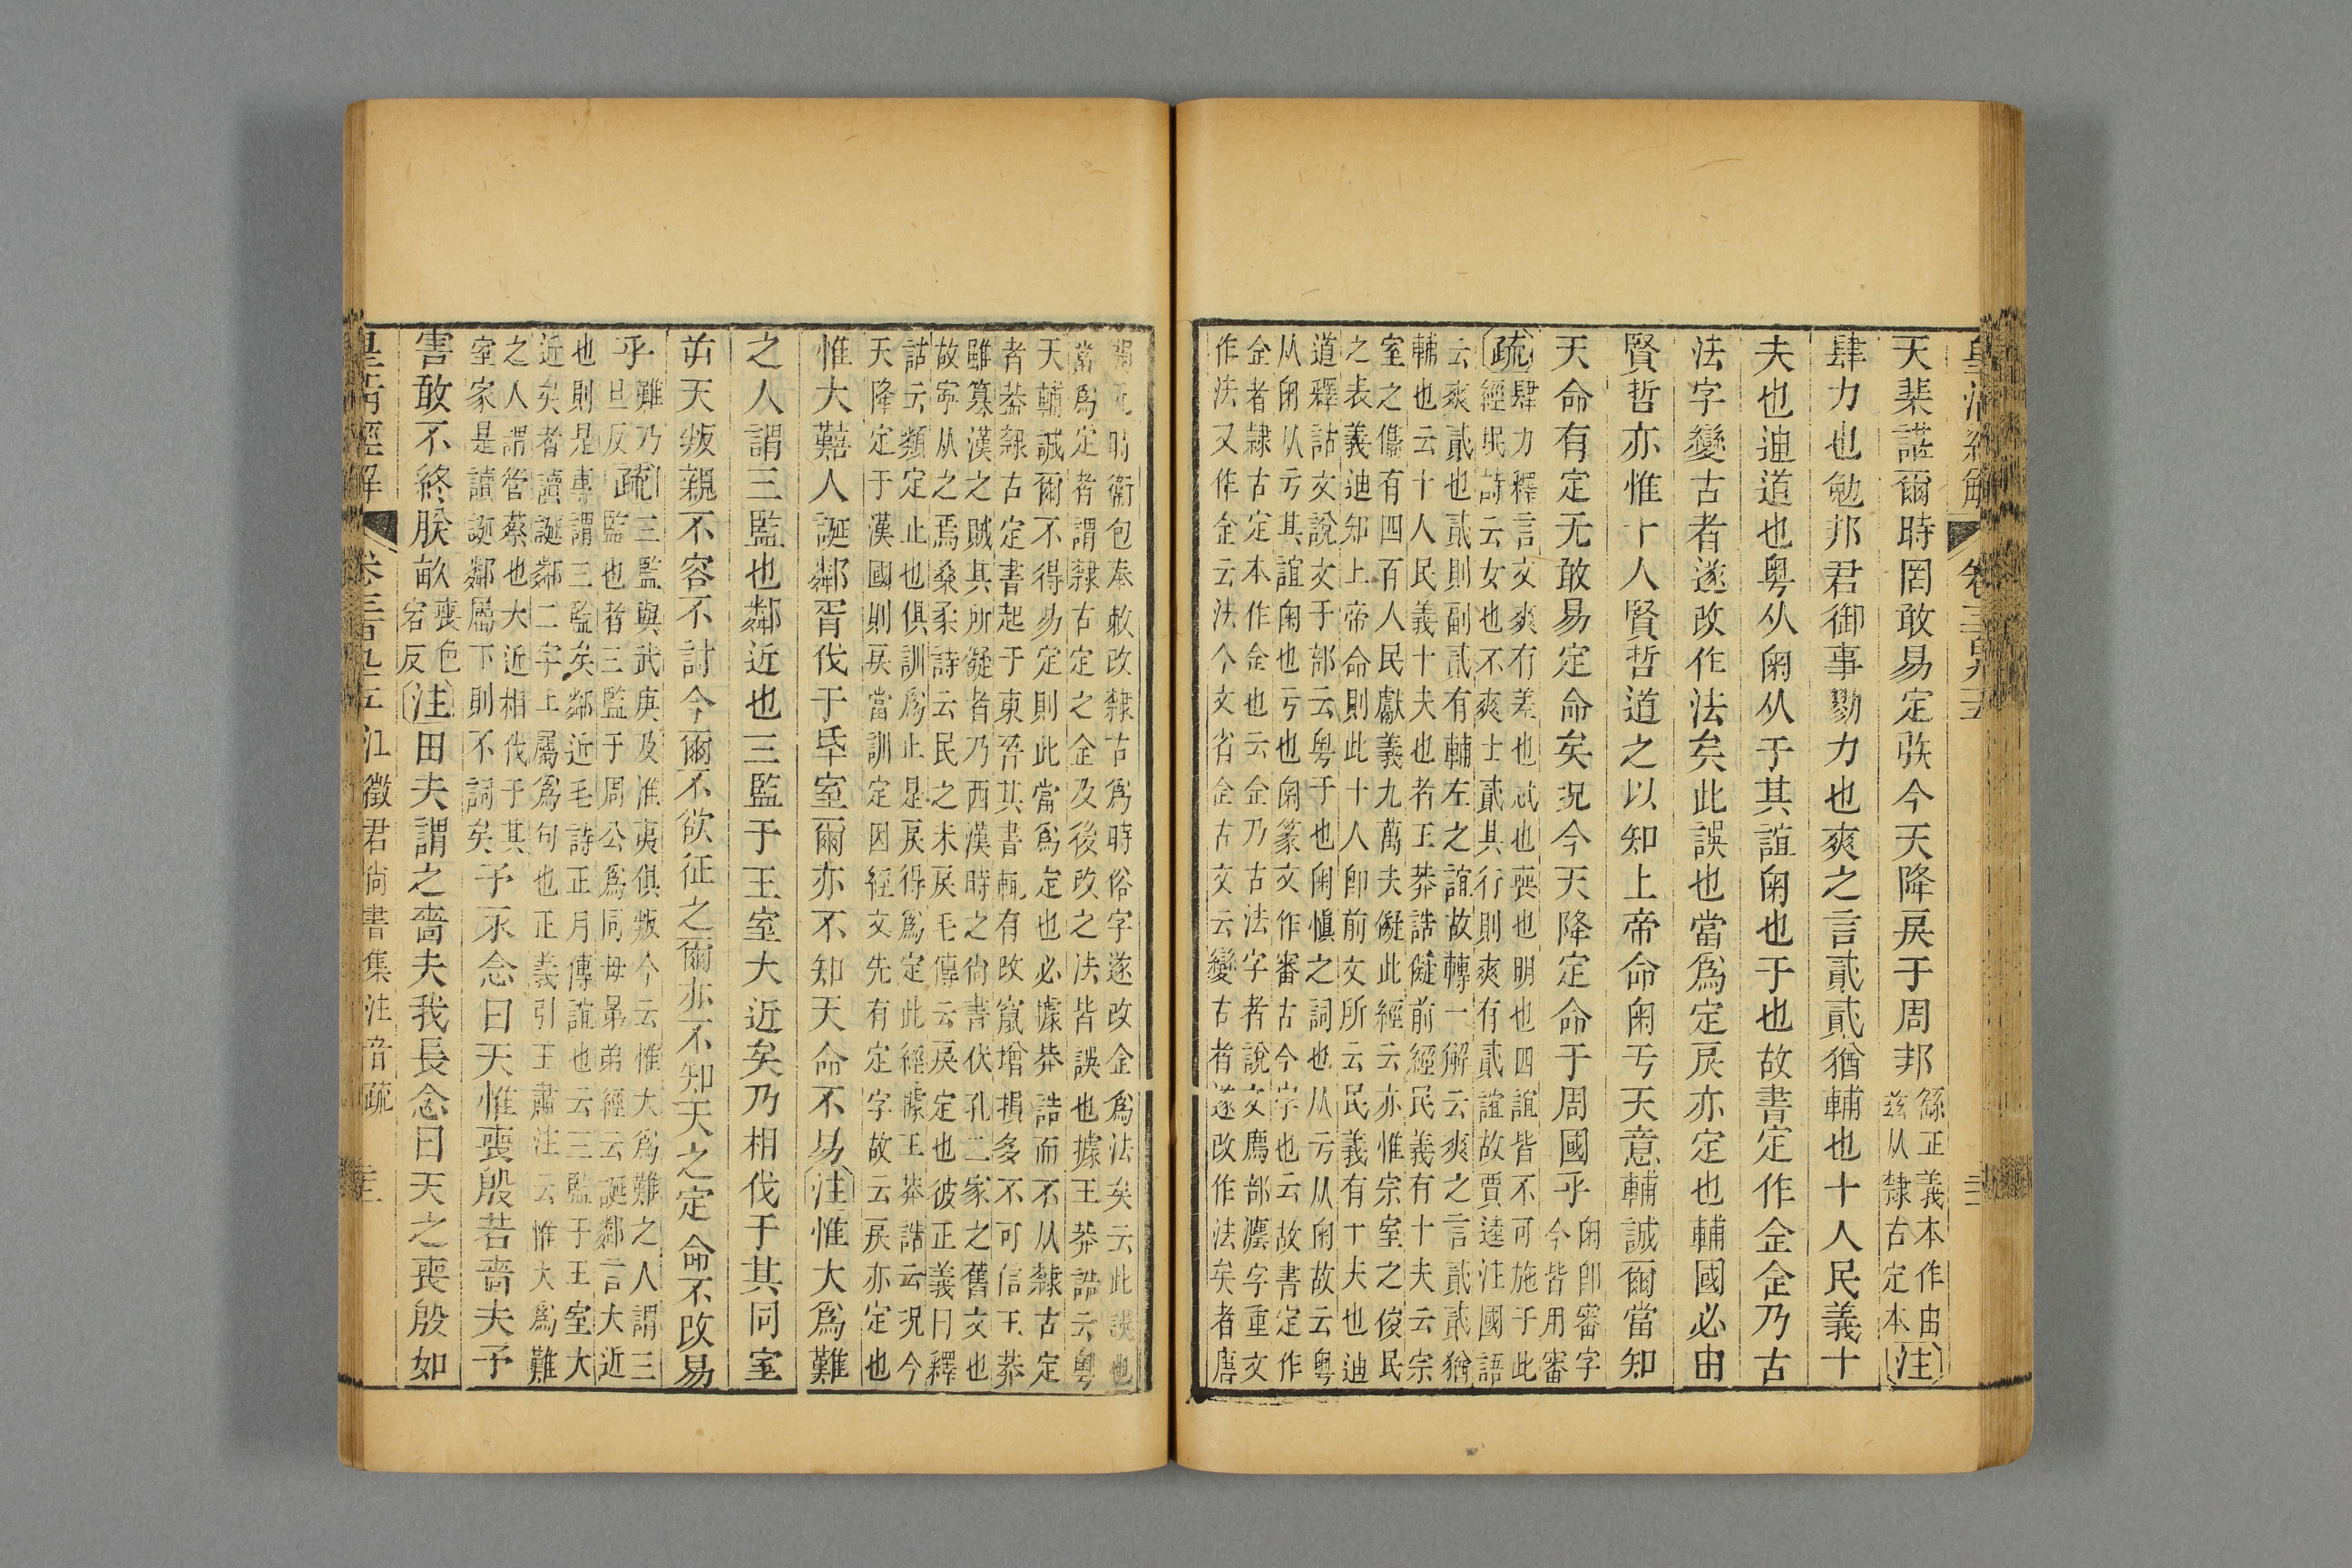 天棐諶爾時罔敢易定矤今天降戾于周邦繇正義本作由
兹从隸古定本注
肆力也勉邦君御事勠力也爽之言貳貳猶輔也十人民義十
夫也迪道也粤从宷从于其誼宷也于也故書定作佱佱乃古
法字變古者遂改作法矣此誤也當爲定戾亦定也輔國必由
賢哲亦惟十人賢哲道之以知上帝命宷亏天意輔誠爾當知
天命有定无敢易定命矣況今天降定命于周國乎宷卽審字
今皆用審
疏肆力釋言文爽有差也忒也喪也明也四誼皆不可施于此
經氓詩云女也不爽士貳其行則爽有貳誼故賈逵注國語
云爽貳也貳則副貳有輔左之誼故轉一解云爽之言貳貳猶
輔也云十人民義十夫也者王莽誥儗前經民義有十夫云宗
室之儁有四百人民獻義九萬夫儗此經云亦惟宗室之俊民
之表義迪知上帝命則此十人卽前文所云民義有十夫也迪
道釋詁文說文于部云粤于也宷愼之詞也从亏从宷故云粤
从宷从亏其誼宷也亏也宷篆文作審古今字也云故書定作
佱者隸古定本作佱也云佱乃古法字者說文廌部灋字重文
作法又作佱云法今文省佱古文云變古者遂改作法矣者唐
開元時衛包奉敕改隸古爲時俗字遂改佱爲法矣云此誤也
當爲定者謂隸古定之佱及後改之法皆誤也據王莽誥云粤
天輔誠爾不得易定則此當爲定也必據莽誥而不从隸古定
者莽隸古定書起于東晉其書輒有改竄增損多不可信王莽
雖篡漢之賊其所儗者乃西漢時之尙書伏孔二家之舊文也
故寧从之焉桑柔詩云民之未戾毛傳云戾定也彼正義曰釋
詁云纇定止也俱訓爲止是戾得爲定此經據王莽誥云況今
天降定于漢國則戾當訓定因經文先有定字故云戾亦定也
惟大囏人誕鄰胥伐于厥室爾亦不知天命不易注惟大爲難
之人謂三監也鄰近也三監于王室大近矣乃相伐于其同室
㠭天叛親不容不討今爾不欲征之爾亦不知天之定命不改易
乎難乃
旦反疏三監與武庚及淮夷俱叛今云惟大爲難之人謂三
監也者三監于周公爲同母弟經云誕鄰言大近
也則是專謂三監矣鄰近毛詩正月傳誼也云三監于王室大
近矣者讀誕鄰二字上屬爲句也正義引王肅注云惟大爲難
之人謂管蔡也大近相伐于其
室家是讀誕鄰屬下則不詞矣予永念曰天惟喪殷若嗇夫予
害敢不終朕畝喪色
宕反注田夫謂之嗇夫我長念曰天之喪殷如
皇淸經解 卷三百九十五 江徵君尙書集注音疏